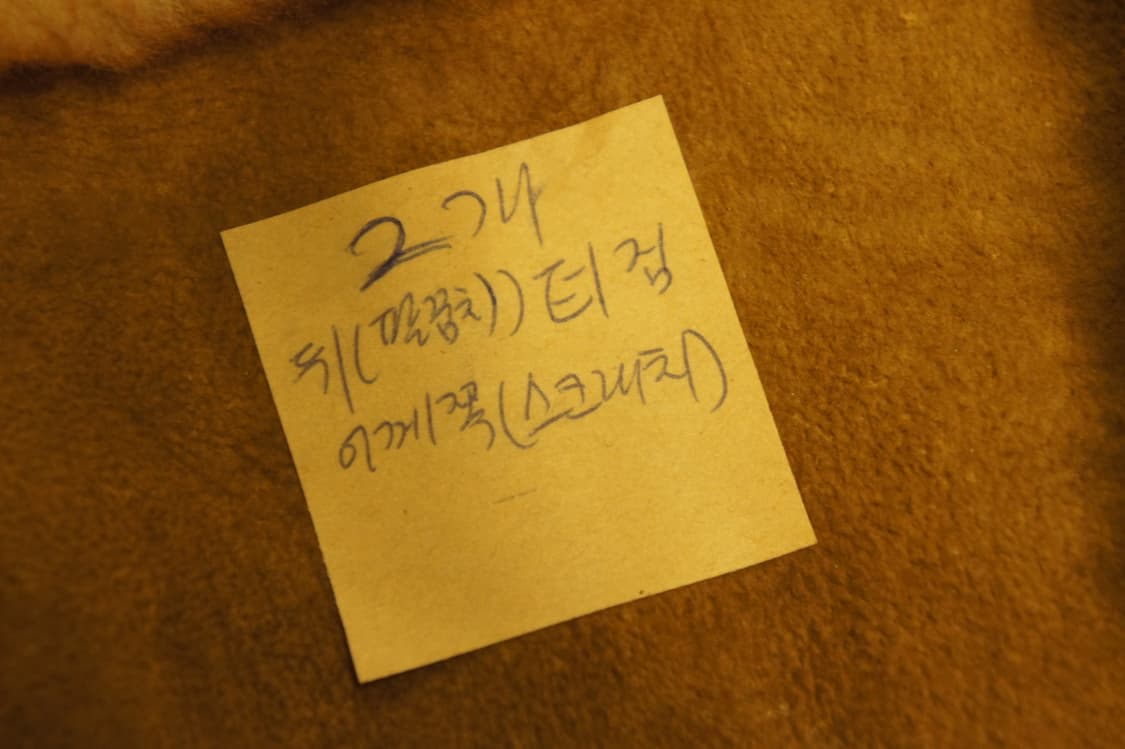 2개
뒤(팔꿈치)) 터짐
어깨쪽(스크래치)